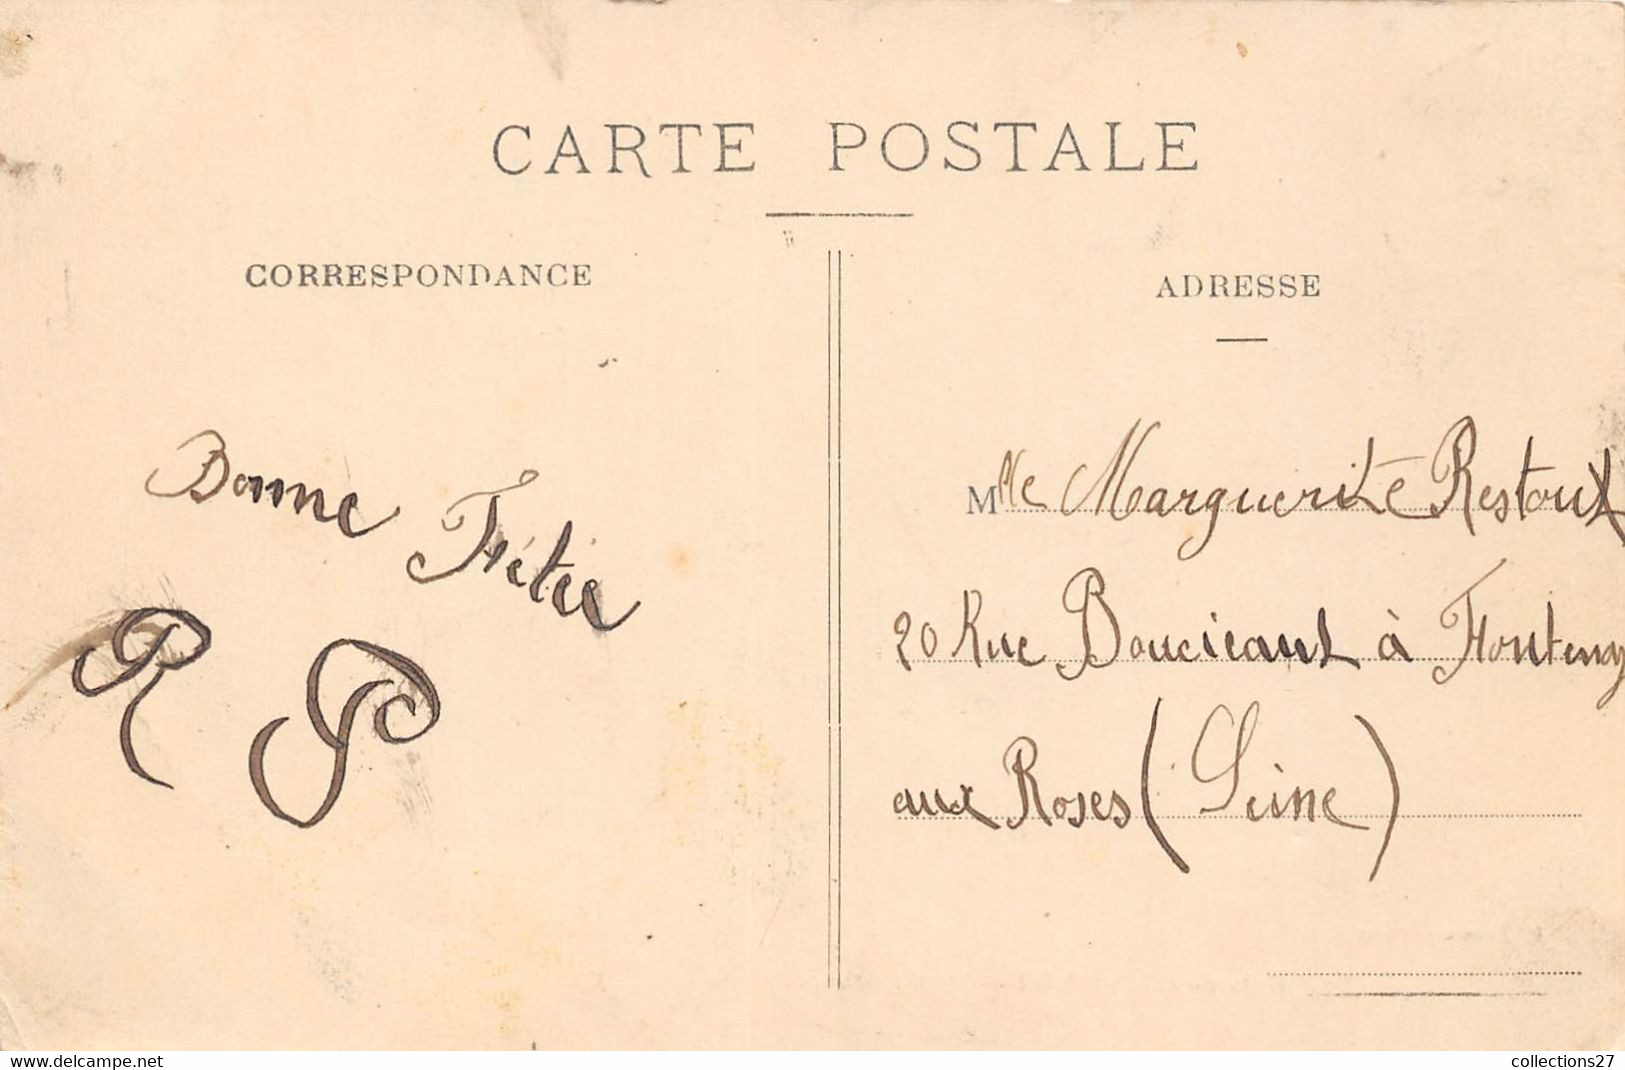 CARTE POSTALE
CORRESPONDANCE
Bonne Fête
R P
ADRESSE
Mlle Marguerite Restoux
20 Rue Boucicaut à Fontenay
aux Roses (Seine)
www.delcampe.net
collections27